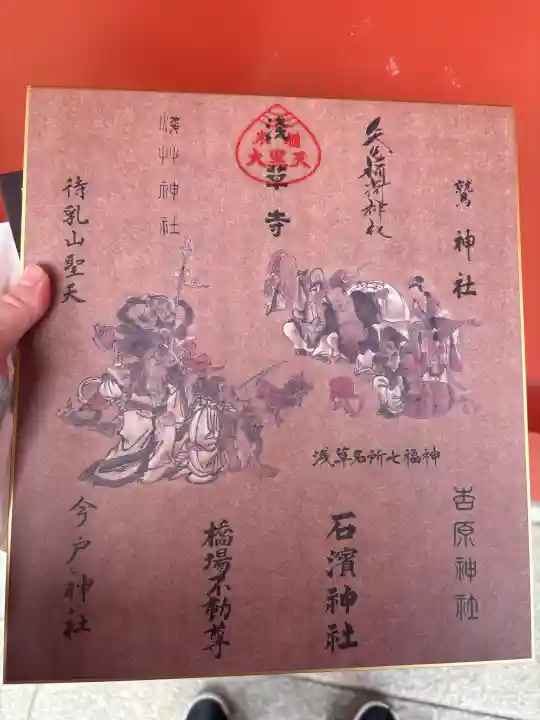 鷲神社
矢先稲荷神社
浅草寺
大黒天
浅艸神社
待乳山聖天
浅草名所七福神
吉原神社
石濱神社
橋場不動尊
今戸神社